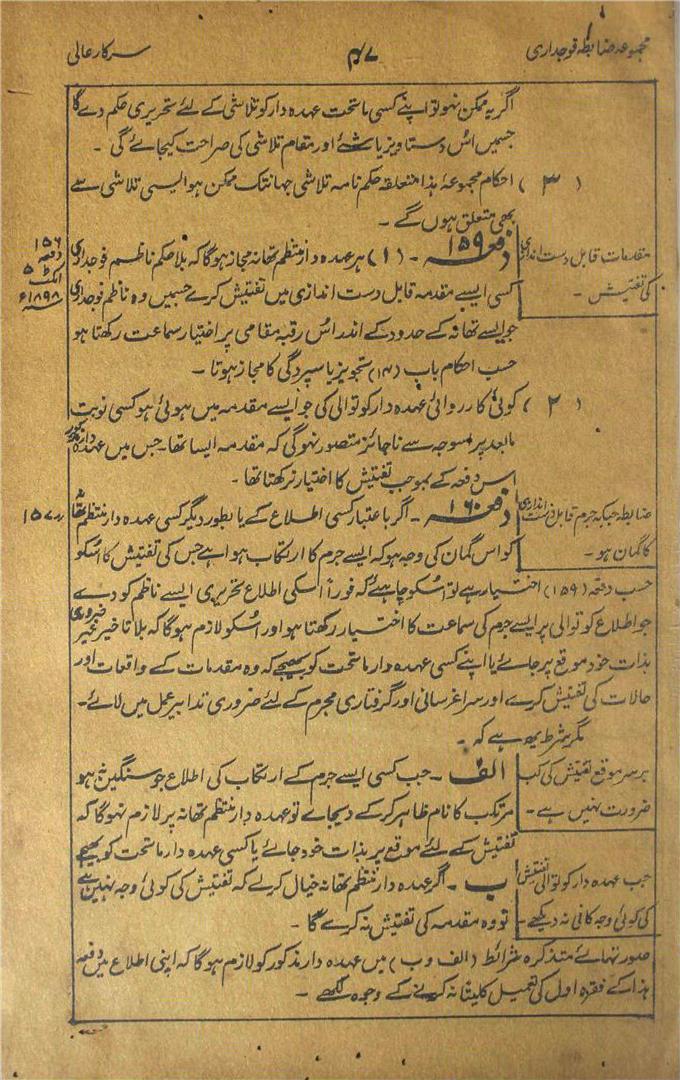 مجموعہ ضابطہ فوجداری
۴۷
سرکار عالی
اگر یہ ممکن نہو تو اپنے کسی ماتحت عہدہ دار کو تلاشی کے لئے تحریری حکم دے گا
جسمیں اُس دستاویز یا شئے اور مقام تلاشی کی صراحت کیجائے گی ۔
(۳) احکام مجموعۂ ہذا متعلقہ حکم نامہ تلاشی جہانتک ممکن ہو ایسی تلاشی سے
بھی متعلق ہوں گے ۔
مقدمات قابل دست اندازی
کی تفتیش ۔
دفعہ ۱۵۹ ۔ (۱) ہر عہدہ دار منتظم تھانہ مجاز ہوگا کہ بلا حکم ناظم فوجداری
۱۵۶
دفعہ
ایکٹ ۵
۱۸۹۸ء
کسی ایسے مقدمہ قابل دست اندازی میں تفتیش کرے جسمیں وہ ناظم فوجداری
جو ایسے تھانہ کے حدود کے اندر اُس رقبہ مقامی پر اختیار سماعت رکھتا ہو
حسب احکام باب (۱۴) تجویز یا سپردگی کا مجاز ہوتا ۔
(۲) کوئی کارروائی عہدہ دار کوتوالی کی جو ایسے مقدمہ میں ہوئی ہو کسی نوبت
مابعد پر اسوجہ سے ناجائز متصور نہوگی کہ مقدمہ ایسا تھا۔ جس میں عہدہ دار مذکور
اس دفعہ کے بموجب تفتیش کا اختیار نرکھتا تھا ۔
ضابطہ جبکہ جرم قابل دست اندازی
کا گمان ہو ۔
دفعہ ۱۶۰ ۔ اگر باعتبار کسی اطلاع کے یا بطور دیگر کسی عہدہ دار منتظم تھانہ
۱۵۷ء
کو اس گمان کی وجہ ہو کہ ایسے جرم کا ارتکاب ہوا ہے جس کی تفتیش کا اسکو
حسب دفعہ (۱۵۹) اختیار ہے تو اسکو چاہیے کہ فوراً اسکی اطلاع تحریری ایسے ناظم کو دے
جو اطلاع کوتوالی پر ایسے جرم کی سماعت کا اختیار رکھتا ہو اور اسکو لازم ہوگا کہ بلا تاخیر غیر ضروری
بذات خود موقع پر جائے یا اپنے کسی عہدہ دار ماتحت کو بھیجے کہ وہ مقدمات کے واقعات اور
حالات کی تفتیش کرے اور سراغرسانی اور گرفتاری مجرم کے لئے ضروری تدابیر عمل میں لائے۔
مگر شرط یہ ہے کہ ۔
برسر موقع تفتیش کی کب
ضرورت نہیں ہے ۔
الف ۔ جب کسی ایسے جرم کے ارتکاب کی اطلاع جو سنگین نہ ہو
مرتکب کا نام ظاہر کرکے دیجائے تو عہدہ دار منتظم تھانہ پر لازم نہوگا کہ
تفتیش کے لئے موقع پر بذات خود جائے یا کسی عہدہ دار ماتحت کو بھیجے
جب عہدہ دار کوتوالی تفتیش
کی کوئی وجہ کافی نہ دیکھے ۔
ب ۔ اگر عہدہ دار منتظم تھانہ خیال کرے کہ تفتیش کی کوئی وجہ نہیں ہے
تو وہ مقدمہ کی تفتیش نہ کرے گا ۔
صورتہائے متذکرہ شرائط (الف و ب) میں عہدہ دار مذکور کو لازم ہوگا کہ اپنی اطلاع میں دفعہ
ہذا کے فقرہ اول کی تعمیل کلیتاً نہ کرنے کے وجوہ لکھے ۔